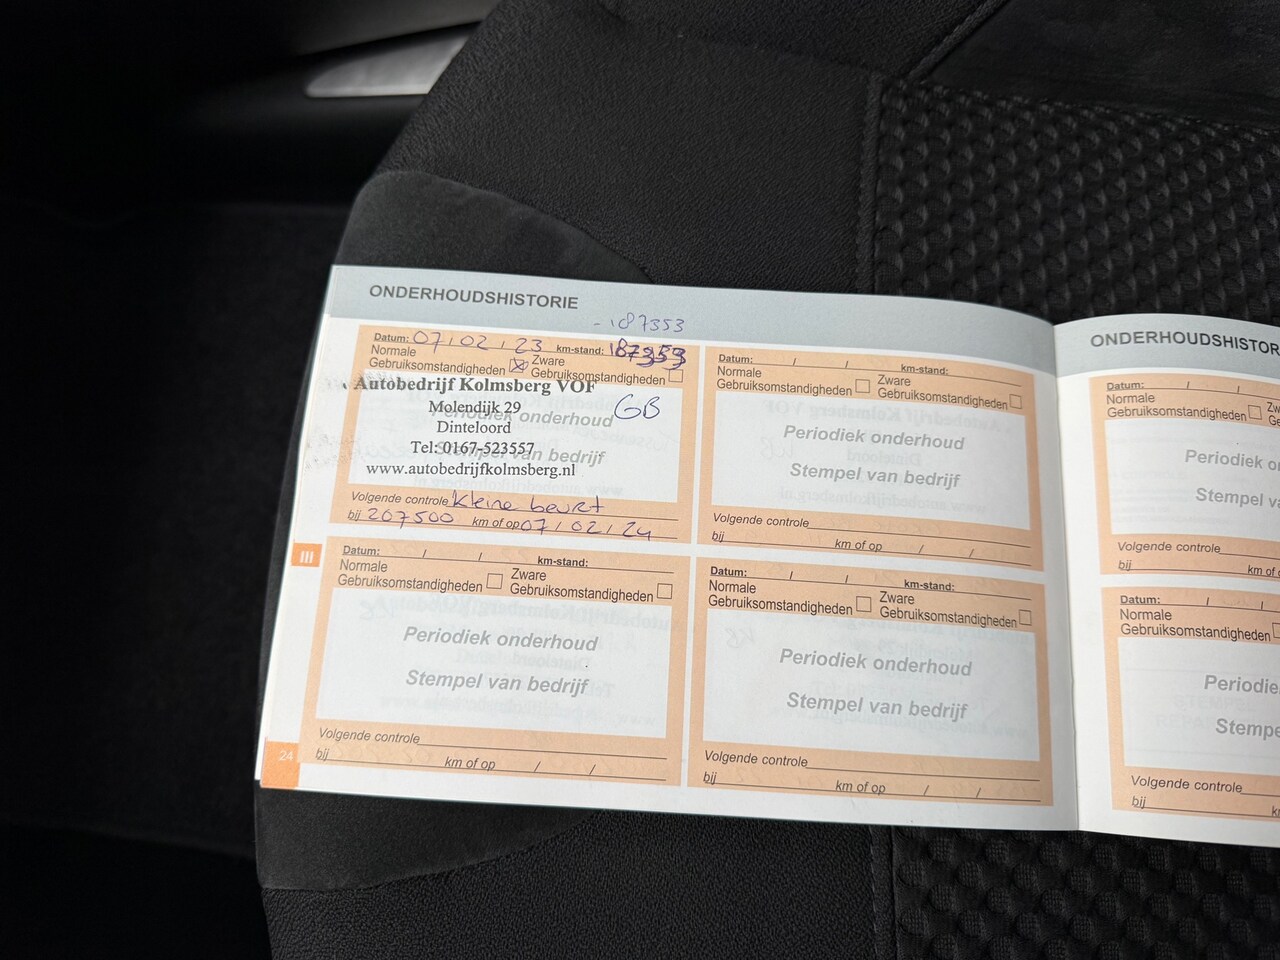 ONDERHOUDSHISTORIE
- 187353
Datum: 07/02/23 km-stand: 187353
Normale Gebruiksomstandigheden Zware Gebruiksomstandigheden
Autobedrijf Kolmsberg VOF
Molendijk 29
Periodiek onderhoud
GB
Dinteloord
Tel: 0167-523557
Stempel van bedrijf
www.autobedrijfkolmsberg.nl
Volgende controle kleine beurt
bij 207500 km of op 07/02/24
Datum: / / km-stand:
Normale Gebruiksomstandigheden Zware Gebruiksomstandigheden
Periodiek onderhoud
Stempel van bedrijf
Volgende controle
bij km of op / /
III
Datum: / / km-stand:
Normale Gebruiksomstandigheden Zware Gebruiksomstandigheden
Periodiek onderhoud
Stempel van bedrijf
Volgende controle
bij km of op / /
Datum: / / km-stand:
Normale Gebruiksomstandigheden Zware Gebruiksomstandigheden
Periodiek onderhoud
Stempel van bedrijf
Volgende controle
bij km of op / /
24
ONDERHOUDSHISTOR
Datum: / /
Normale Gebruiksomstandigheden Zw
Ge
Periodiek o
Stempel va
Volgende controle
bij km of
Datum: / /
Normale
Gebruiksomstandigheden
Periodie
Stempe
Volgende controle
bij